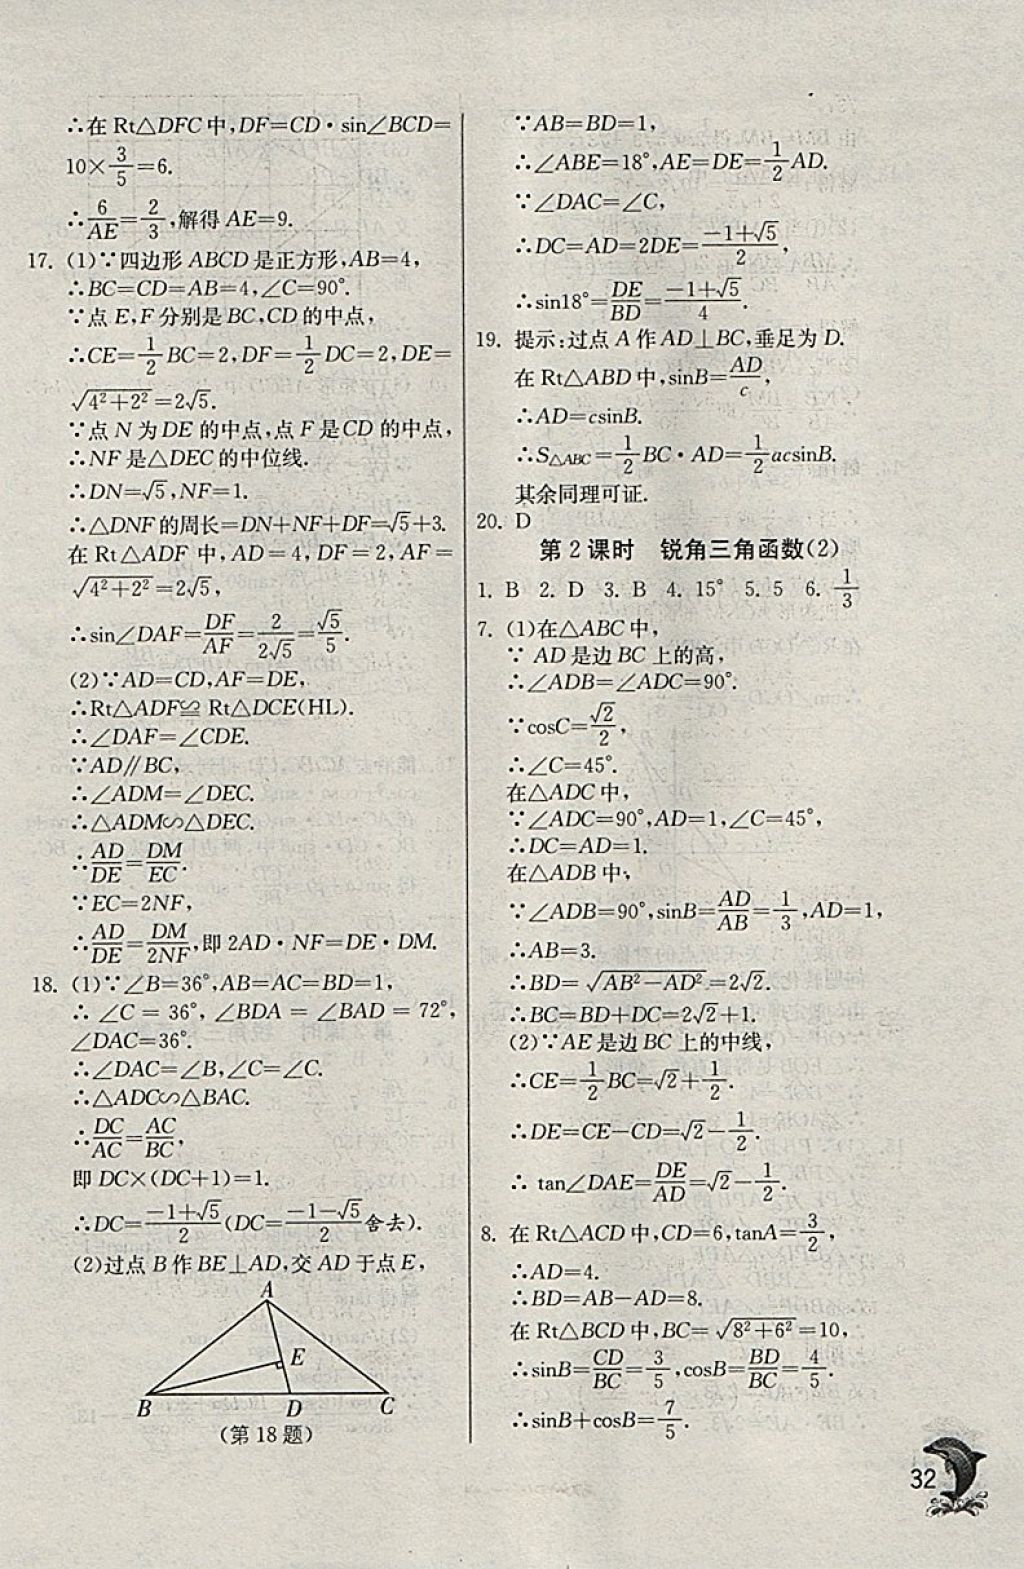 ∴在 Rt△DFC 中,DF=CD·sin∠BCD=
10×3/5=6.
∴6/AE=2/3,解得 AE=9.
17. (1)∵四边形 ABCD 是正方形,AB=4,
∴BC=CD=AB=4,∠C=90°.
∵点 E,F 分别是 BC,CD 的中点,
∴CE=1/2 BC=2,DF=1/2 DC=2,DE=
√(4²+2²)=2√5.
∵点 N 为 DE 的中点,点 F 是 CD 的中点,
∴NF 是△DEC 的中位线.
∴DN=√5,NF=1.
∴△DNF 的周长=DN+NF+DF=√5+3.
在 Rt△ADF 中,AD=4,DF=2,AF=
√(4²+2²)=2√5,
∴sin∠DAF=DF/AF=2/(2√5)=√5/5.
(2)∵AD=CD,AF=DE,
∴Rt△ADF≌Rt△DCE(HL).
∴∠DAF=∠CDE.
∵AD∥BC,
∴∠ADM=∠DEC.
∴△ADM∽△DEC.
∴AD/DE=DM/EC.
∵EC=2NF,
∴AD/DE=DM/2NF,即 2AD·NF=DE·DM.
18. (1)∵∠B=36°,AB=AC=BD=1,
∴∠C=36°,∠BDA=∠BAD=72°,
∠DAC=36°.
∴∠DAC=∠B,∠C=∠C.
∴△ADC∽△BAC.
∴DC/AC=AC/BC,
即 DC×(DC+1)=1.
∴DC=(-1+√5)/2(DC=(-1-√5)/2舍去).
(2)过点 B 作 BE⊥AD,交 AD 于点 E,
A
E
B D C
(第 18 题)
∵AB=BD=1,
∴∠ABE=18°,AE=DE=1/2 AD.
∵∠DAC=∠C,
∴DC=AD=2DE=(-1+√5)/2,
∴sin18°=DE/BD=(-1+√5)/4.
19. 提示:过点 A 作 AD⊥BC,垂足为 D.
在 Rt△ABD 中,sinB=AD/c,
∴AD=csinB.
∴S△ABC=1/2 BC·AD=1/2 acsinB.
其余同理可证.
20. D
第 2 课时 锐角三角函数(2)
1. B 2. D 3. B 4. 15° 5. 5 6. 1/3
7. (1)在△ABC 中,
∵AD 是边 BC 上的高,
∴∠ADB=∠ADC=90°.
∵cosC=√2/2,
∴∠C=45°.
在△ADC 中,
∵∠ADC=90°,AD=1,∠C=45°,
∴DC=AD=1.
在△ADB 中,
∵∠ADB=90°,sinB=AD/AB=1/3,AD=1,
∴AB=3.
∴BD=√(AB²-AD²)=2√2.
∴BC=BD+DC=2√2+1.
(2)∵AE 是边 BC 上的中线,
∴CE=1/2 BC=√2+1/2.
∴DE=CE-CD=√2-1/2.
∴tan∠DAE=DE/AD=√2-1/2.
8. 在 Rt△ACD 中,CD=6,tanA=3/2,
∴AD=4.
∴BD=AB-AD=8.
在 Rt△BCD 中,BC=√(8²+6²)=10,
∴sinB=CD/BC=3/5,cosB=BD/BC=4/5.
∴sinB+cosB=7/5.
32